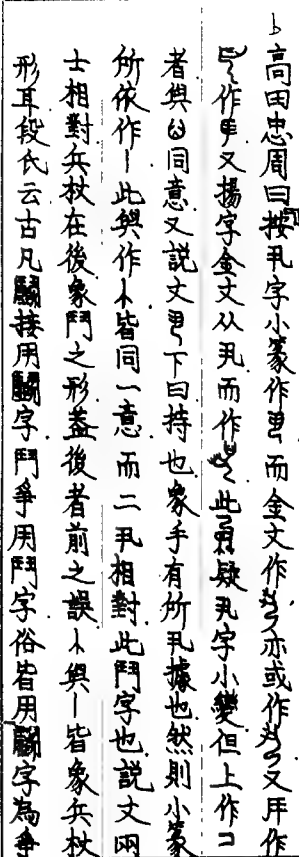 b高田忠周曰按丮字小篆作而金文作亦或作又厈作
作又揚字金文从丮而作此疑丮字小變但上作コ
者與同意又說文下曰持也象手有所丮據也然則小篆
所依作丨此與作卜皆同一意而二丮相對此鬥字也說文兩
士相對兵杖在後象鬥之形蓋後者前之誤卜與丨皆象兵杖
形耳段氏云古凡鬭接用鬭字鬥爭用鬥字俗皆用鬭字為爭